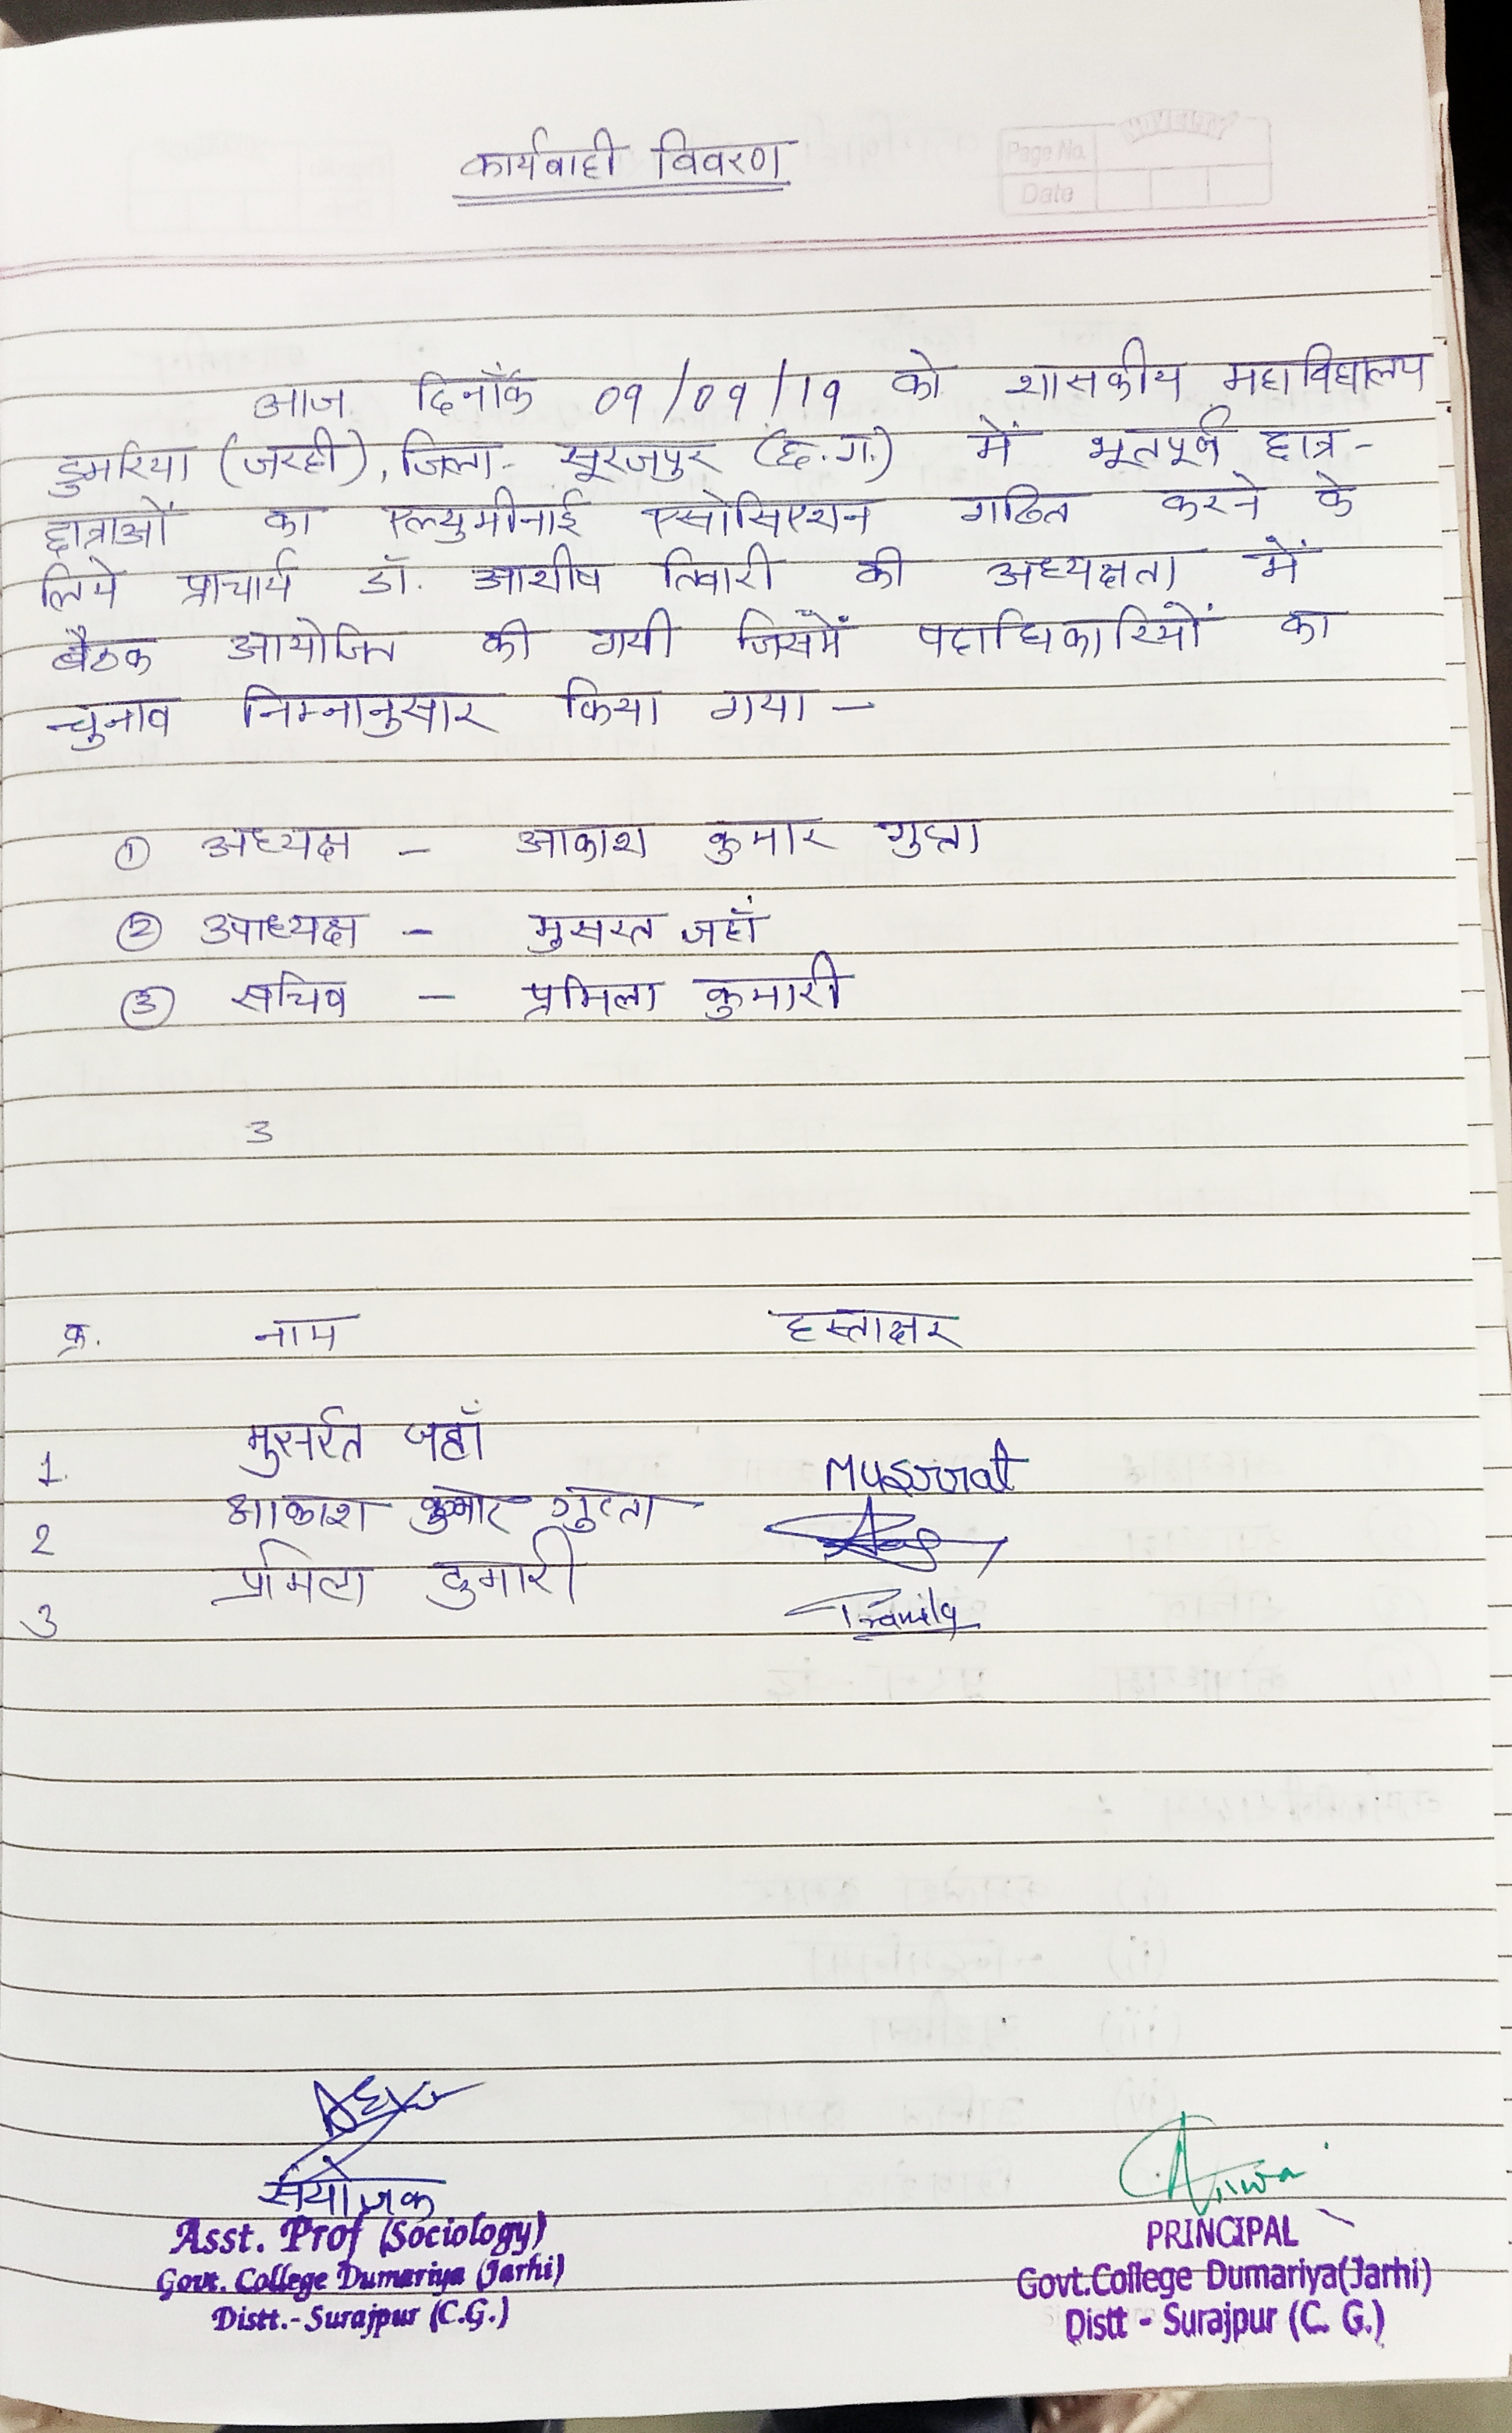 कार्यवाही विवरण
Page No.
Date
आज दिनाँक 09/09/19 को शासकीय महाविद्यालय
डुमरिया (जरही), जिला - सूरजपुर (छ.ग.) में भूतपूर्व छात्र-
छात्राओं का एल्युमीनाई एसोसिएशन गठित करने के
लिये प्राचार्य डॉ. आशीष तिवारी की अध्यक्षता में
बैठक आयोजित की गयी जिसमें पदाधिकारियों का
चुनाव निम्नानुसार किया गया -
① अध्यक्ष - आकाश कुमार गुप्ता
② उपाध्यक्ष - मुसरत जहाँ
③ सचिव - प्रमिला कुमारी
3
क्र. नाम हस्ताक्षर
1. मुसर्रत जहाँ Musrrat
2 आकाश कुमार गुप्ता
3 प्रमिला कुमारी Pramila
संयोजक
Asst. Prof (Sociology)
Govt. College Dumariya (Jarhi)
Distt.- Surajpur (C.G.)
PRINCIPAL
Govt.College Dumariya(Jarhi)
Distt - Surajpur (C. G.)